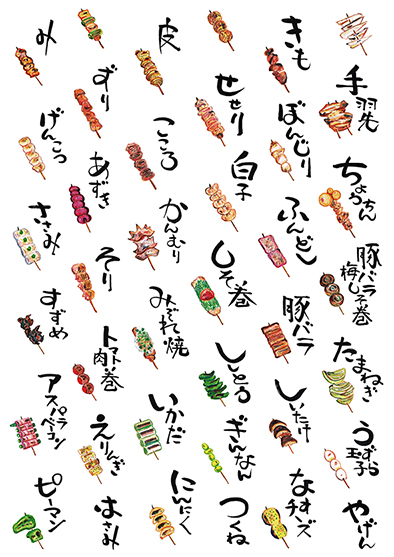 手羽先
ちょうちん
豚バラ
梅しそ巻
たまねぎ
うずら
玉子
やげん
きも
ぼんじり
ふんどし
豚バラ
しいたけ
なす
チーズ
せせり
白子
しそ巻
ししとう
ぎんなん
つくね
皮
こころ
かんむり
みぞれ焼
いかだ
にんにく
ずり
あずき
そり
トマト
肉巻
えりんぎ
はさみ
み
げんこつ
ささみ
すずめ
アスパラ
ベーコン
ピーマン